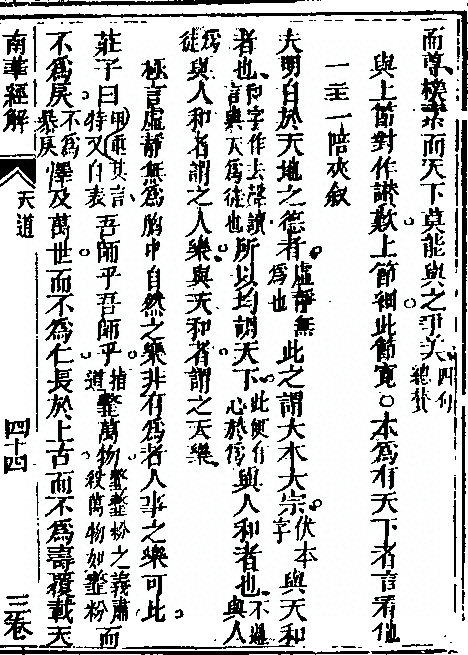 而尊樸素而天下莫能與之爭美四句總贊
與上節對作讚歎上節細此節寬○本為有天下者言看他
一主一陪夾敘
夫明白於天地之德者虛靜無為也此之謂大本大宗伏本字與天和
者也和字作去聲讀言與天為徒也所以均調天下此便有心於為與人和者也不過與人
為徒與人和者謂之人樂與天和者謂之天樂
極言虛靜無為胸中自然之樂非有為者人事之樂可此
莊子曰甲兩其言特又自表吾師乎吾師乎指道䪠萬物䪠䪠粉之義肅殺萬物如䪠粉而
不為戾不為暴戾澤及萬世而不為仁長於上古而不為壽覆載天
南華經解
天道
四十四
三卷